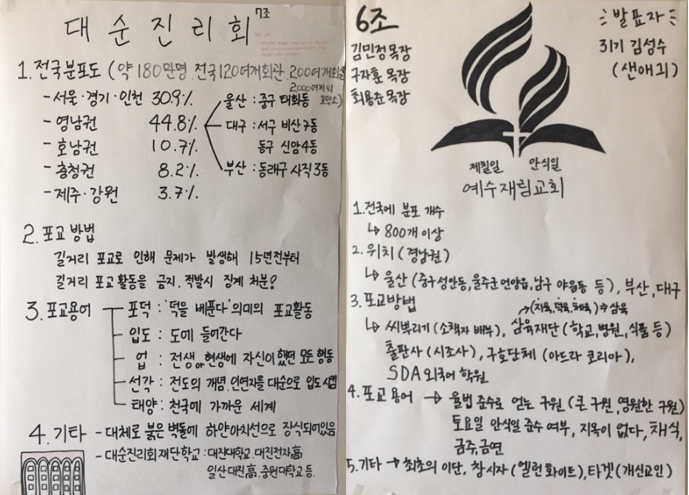 대순진리회
7조
1. 전국분포도 (약 180만명 전국 120여개회관, 200여개회실
2,000여개의
포덕소)
- 서울·경기·인천 30.9%
- 영남권 44.8%
- 호남권 10.7%
- 충청권 8.2%
- 제주·강원 3.7%
울산 : 중구 태화동
대구 : 서구 비산7동
동구 신암4동
부산 : 동래구 사직3동
2. 포교 방법
길거리 포교로 인해 문제가 발생해 15년전부터
길거리 포교 활동을 금지. 적발시 징계 처분?
3. 포교용어
포덕 : '덕을 베푼다' 의미의 포교활동
입도 : 도에 들어간다
업 : 전생 or 현생에 자신이 했던 모든 행동
선각 : 전도의 개념. 인연자들 대순으로 입도 시켜
태양 : 천국에 가까운 세계
4. 기타 - 대체로 붉은 벽돌에 하얀아치선으로 장식되어있음
- 대순진리회 재단학교 : 대진대학교, 대진전자高
일산대진高, 중원대학교 등.
6조
김민정목장
구자훈 목장
최용준목장
발표자
31기 김성수
(샌애긔)
제칠일 안식일
예수재림교회
1. 전국에 분포 개수
↳ 800개 이상
2. 위치 (경남권)
↳ 울산 (중구 성안동, 울주군 언양읍, 남구 야음동 등), 부산, 대구
3. 포교방법
(지육, 덕육, 체육) → 삼육
↳ 씨뿌리기 (소책자 배부), 삼육재단 (학교, 병원, 식품 등)
출판사 (시조사), 구호단체 (아드라 코리아),
SDA 외국어 학원
4. 포교 용어 → 율법 준수로 얻는 구원 (큰 구원, 영원한 구원)
토요일 안식일 준수 여부, 지옥이 없다, 채식,
금주, 금연
5. 기타 → 최초의 이단, 창시자 (엘런 화이트), 타겟 (개신교인)